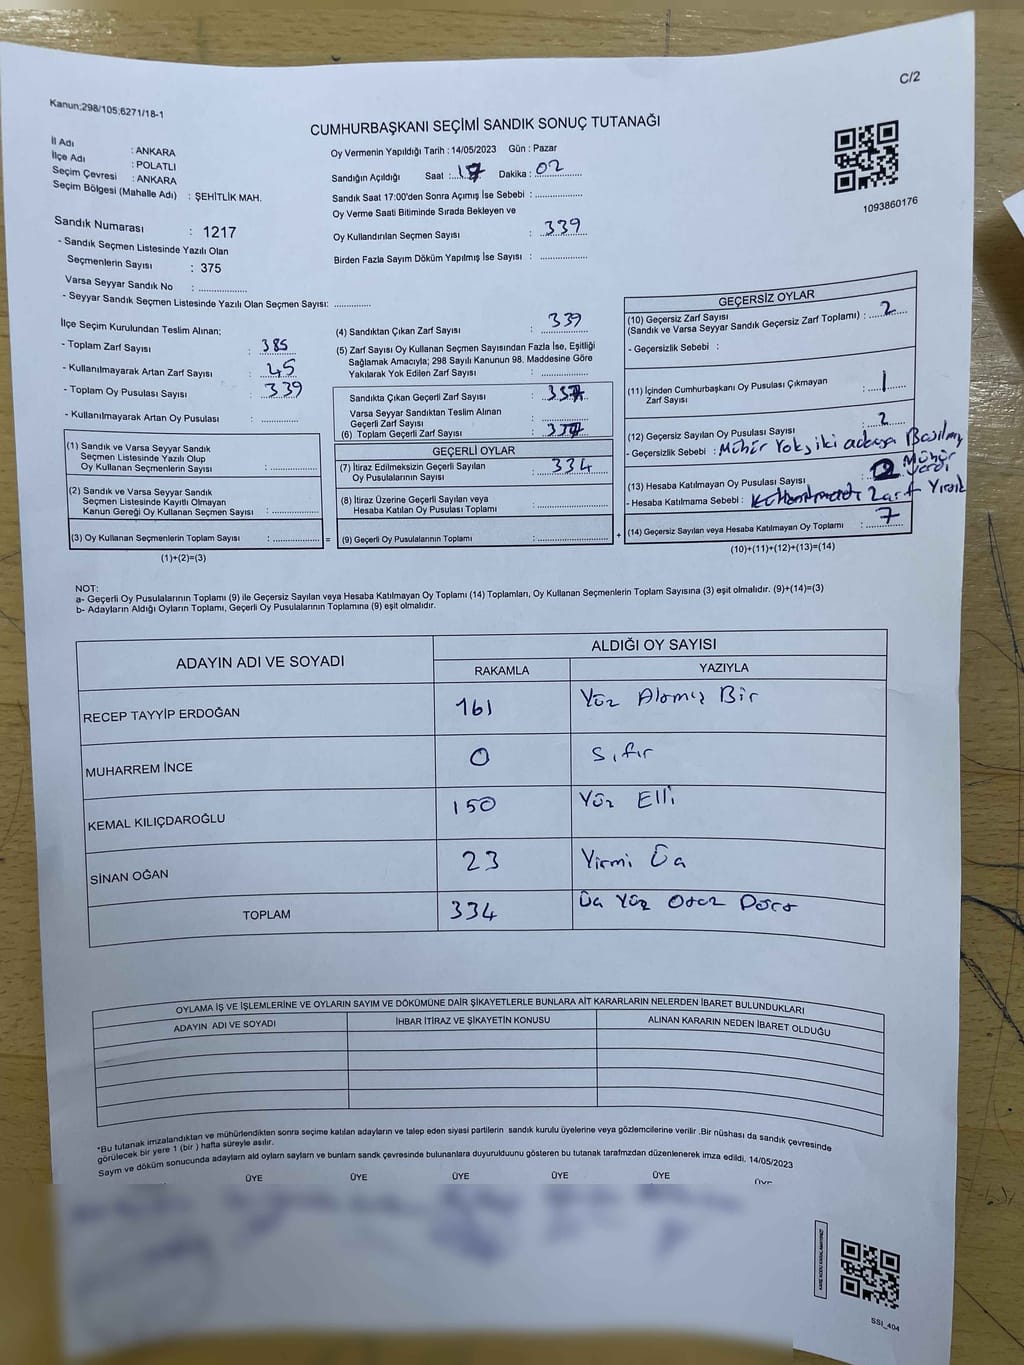 C/2
Kanun:298/105;6271/18-1
CUMHURBAŞKANI SEÇİMİ SANDIK SONUÇ TUTANAĞI
İl Adı : ANKARA
İlçe Adı : POLATLI
Seçim Çevresi : ANKARA
Seçim Bölgesi (Mahalle Adı) : ŞEHİTLİK MAH.
Oy Vermenin Yapıldığı Tarih : 14/05/2023 Gün : Pazar
Sandığın Açıldığı Saat : 17 Dakika : 02
Sandık Saat 17:00'den Sonra Açımış İse Sebebi :
Oy Verme Saati Bitiminde Sırada Bekleyen ve
Oy Kullandırılan Seçmen Sayısı : 339
Birden Fazla Sayım Döküm Yapılmış İse Sayısı :
1093860176
Sandık Numarası : 1217
- Sandık Seçmen Listesinde Yazılı Olan
Seçmenlerin Sayısı : 375
Varsa Seyyar Sandık No :
- Seyyar Sandık Seçmen Listesinde Yazılı Olan Seçmen Sayısı:
İlçe Seçim Kurulundan Teslim Alınan;
- Toplam Zarf Sayısı : 385
- Kullanılmayarak Artan Zarf Sayısı : 45
- Toplam Oy Pusulası Sayısı : 339
- Kullanılmayarak Artan Oy Pusulası :
(1) Sandık ve Varsa Seyyar Sandık
Seçmen Listesinde Yazılı Olup
Oy Kullanan Seçmenlerin Sayısı :
(2) Sandık ve Varsa Seyyar Sandık
Seçmen Listesinde Kayıtlı Olmayan
Kanun Gereği Oy Kullanan Seçmen Sayısı :
(3) Oy Kullanan Seçmenlerin Toplam Sayısı : =
(1)+(2)=(3)
(4) Sandıktan Çıkan Zarf Sayısı : 339
(5) Zarf Sayısı Oy Kullanan Seçmen Sayısından Fazla İse, Eşitliği
Sağlamak Amacıyla; 298 Sayılı Kanunun 98. Maddesine Göre
Yakılarak Yok Edilen Zarf Sayısı :
Sandıkta Çıkan Geçerli Zarf Sayısı :
Varsa Seyyar Sandıktan Teslim Alınan
Geçerli Zarf Sayısı :
(6) Toplam Geçerli Zarf Sayısı :
GEÇERLİ OYLAR
(7) İtiraz Edilmeksizin Geçerli Sayılan
Oy Pusulasının Sayısı : 334
(8) İtiraz Üzerine Geçerli Sayılan veya
Hesaba Katılan Oy Pusulası Toplamı :
(9) Geçerli Oy Pusulalarının Toplamı : +
GEÇERSİZ OYLAR
(10) Geçersiz Zarf Sayısı
(Sandık ve Varsa Seyyar Sandık Geçersiz Zarf Toplamı) : 2
- Geçersizlik Sebebi :
(11) İçinden Cumhurbaşkanı Oy Pusulası Çıkmayan
Zarf Sayısı : 1
(12) Geçersiz Sayılan Oy Pusulası Sayısı : 2
- Geçersizlik Sebebi : Mühür Yok, iki adaya Basılmış
(13) Hesaba Katılmayan Oy Pusulası Sayısı : 2 Mühür
- Hesaba Katılmama Sebebi : Zarf Yırtık
(14) Geçersiz Sayılan veya Hesaba Katılmayan Oy Toplamı : 7
(10)+(11)+(12)+(13)=(14)
NOT:
a- Geçerli Oy Pusulalarının Toplamı (9) ile Geçersiz Sayılan veya Hesaba Katılmayan Oy Toplamı (14) Toplamları, Oy Kullanan Seçmenlerin Toplam Sayısına (3) eşit olmalıdır. (9)+(14)=(3)
b- Adayların Aldığı Oyların Toplamı, Geçerli Oy Pusulalarının Toplamına (9) eşit olmalıdır.
ADAYIN ADI VE SOYADI ALDIĞI OY SAYISI
RAKAMLA YAZIYLA
RECEP TAYYİP ERDOĞAN 161 Yüz Altmış Bir
MUHARREM İNCE 0 Sıfır
KEMAL KILIÇDAROĞLU 150 Yüz Elli
SİNAN OĞAN 23 Yirmi Üç
TOPLAM 334 Üç Yüz Otuz Dört
OYLAMA İŞ VE İŞLEMLERİNE VE OYLARIN SAYIM VE DÖKÜMÜNE DAİR ŞİKAYETLERLE BUNLARA AİT KARARLARIN NELERDEN İBARET BULUNDUKLARI
ADAYIN ADI VE SOYADI İHBAR İTİRAZ VE ŞİKAYETİN KONUSU ALINAN KARARIN NEDEN İBARET OLDUĞU
*Bu tutanak imzalandıktan ve mühürlendikten sonra seçime katılan adayların ve talep eden siyasi partilerin sandık kurulu üyelerine veya gözlemcilerine verilir .Bir nüshası da sandık çevresinde
görülecek bir yere 1 (bir ) hafta süreyle asılır.
Sayım ve döküm sonucunda adayların ald oyların sayların ve bunlam sandk çevresinde bulunanlara duyurulduunu gösteren bu tutanak tarafmzdan düzenlenerek imza edildi. 14/05/2023
ÜYE ÜYE ÜYE ÜYE ÜYE
SSI_404